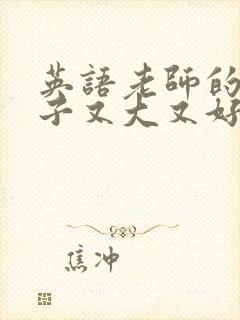 英語老師的
子又大又好
焦冲